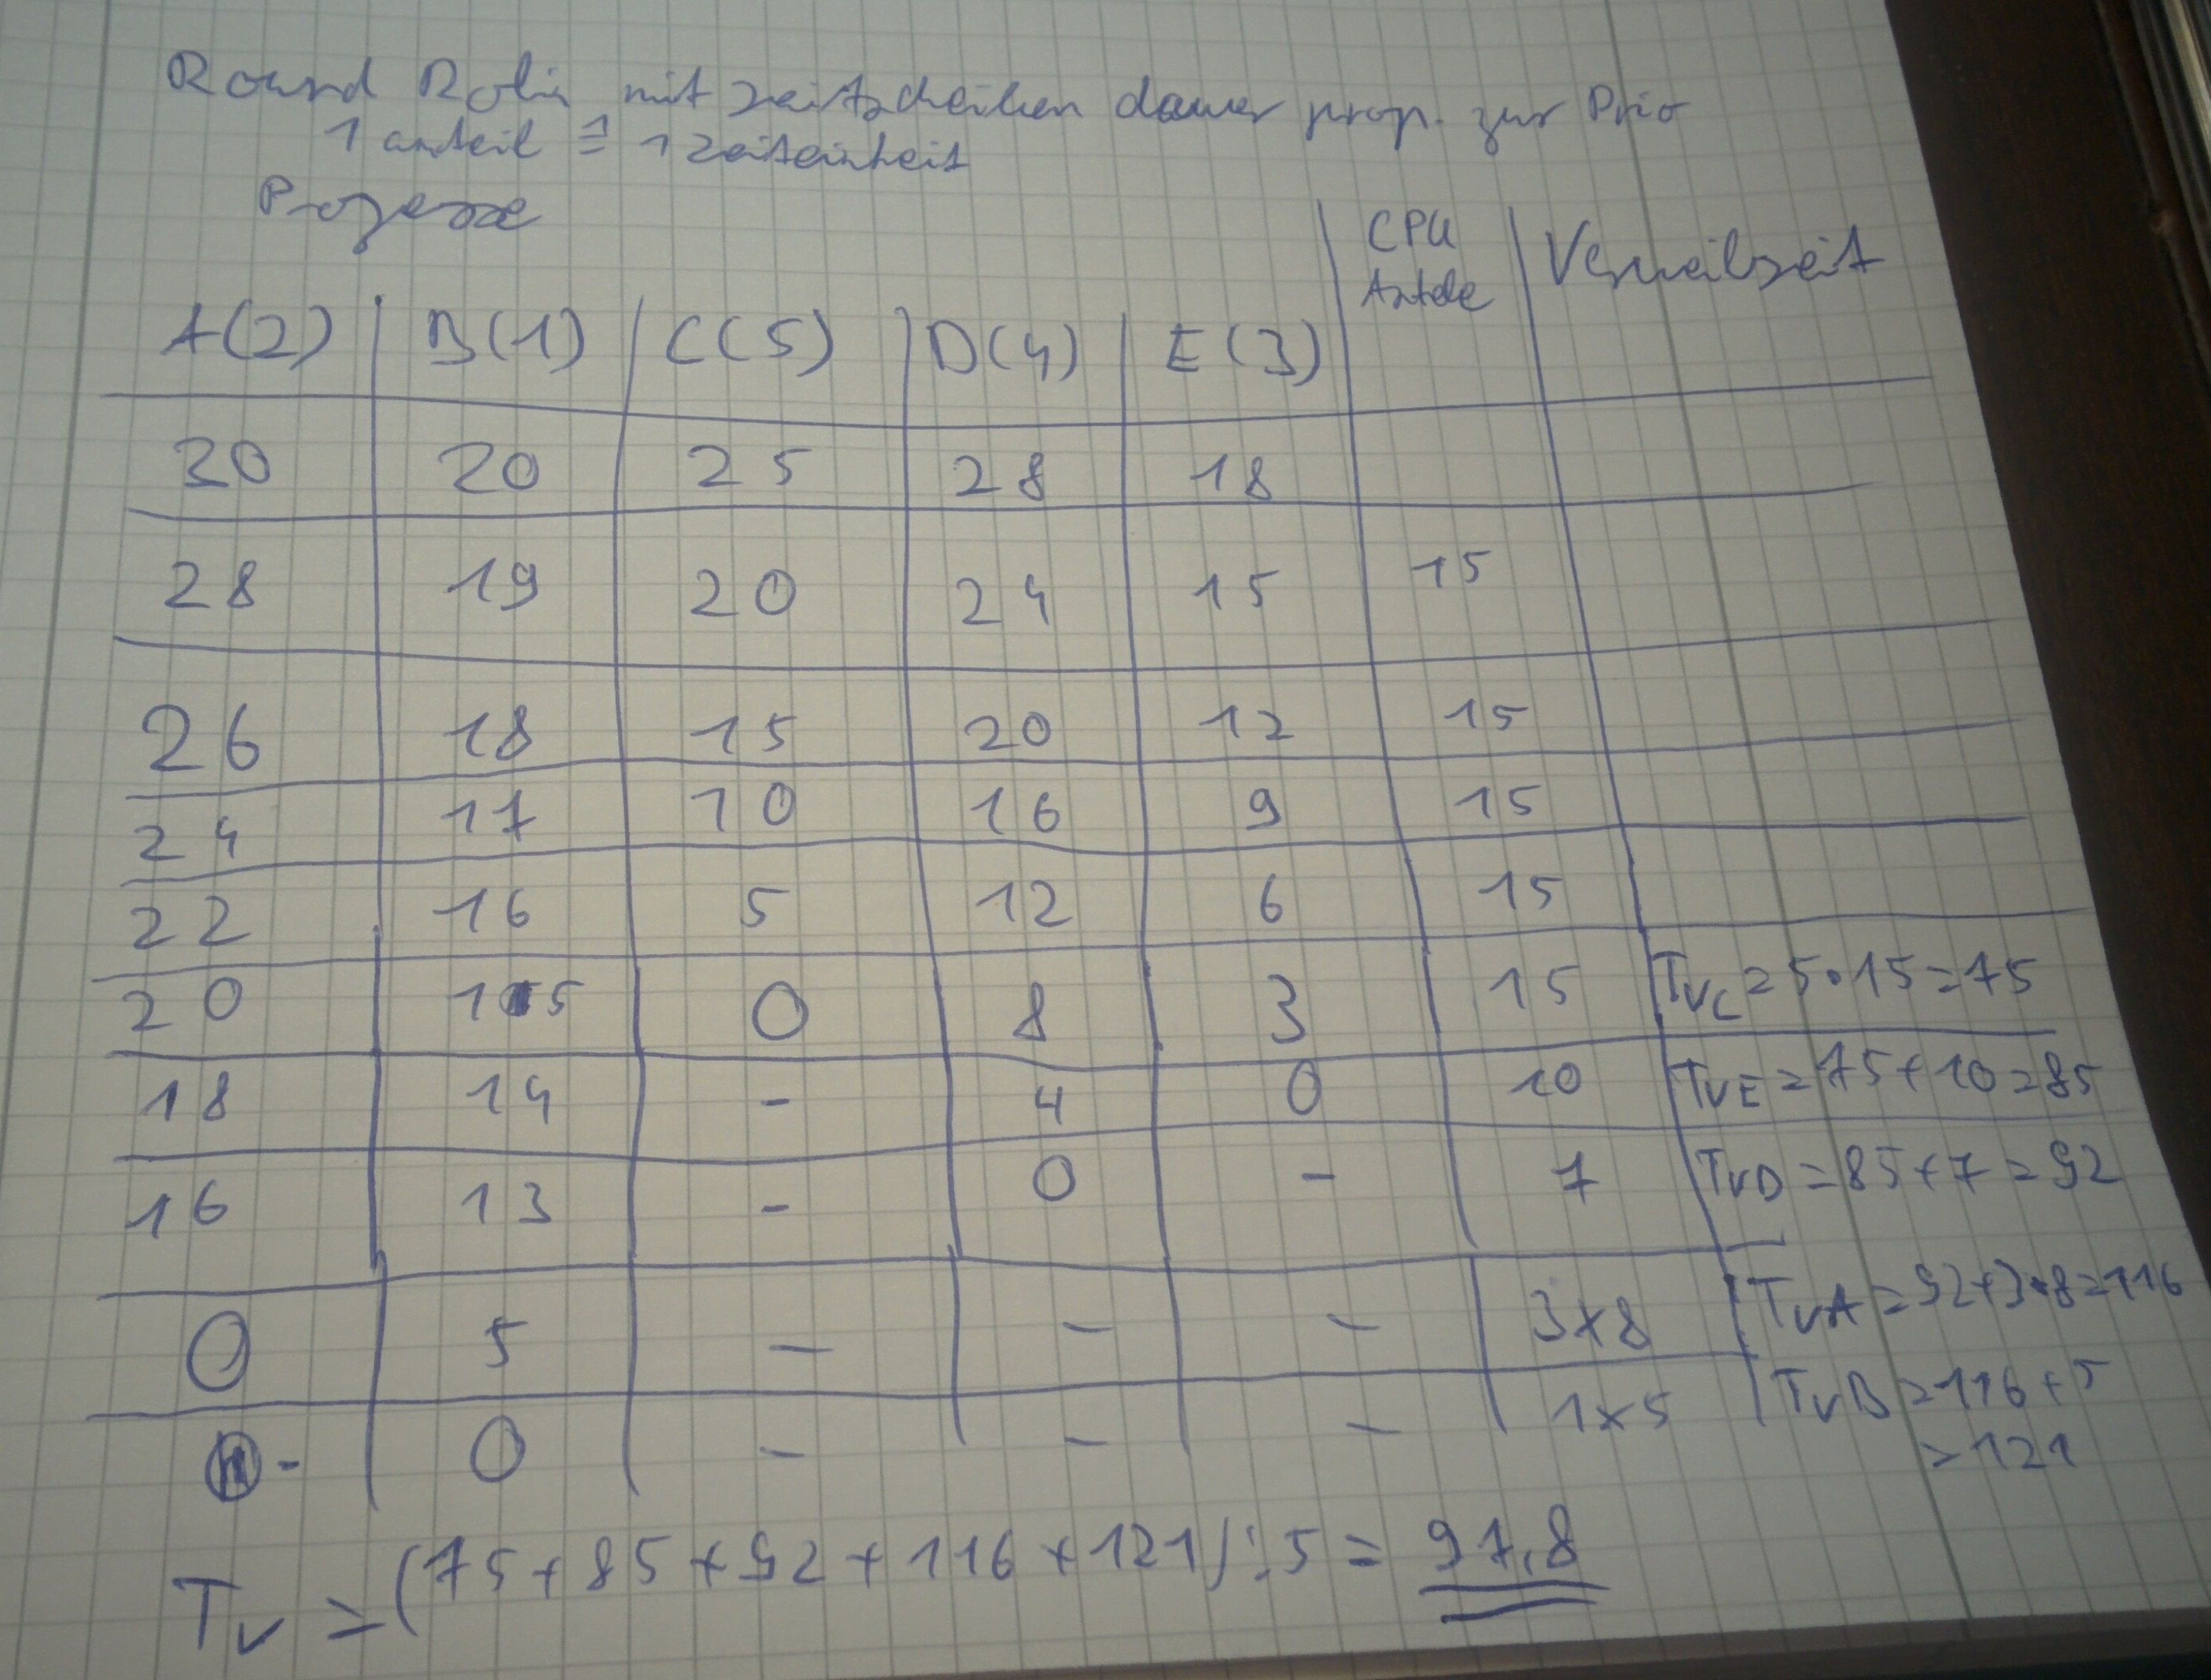 Round Robin mit Zeitscheiben dauer prop. zur Prio
1 anteil ≙ 1 Zeiteinheit
Prozesse
A(2) B(1) C(5) D(4) E(3) CPU Anteile Verweilzeit
30 20 25 28 18
28 19 20 24 15 15
26 18 15 20 12 15
24 17 10 16 9 15
22 16 5 12 6 15
20 15 0 8 3 15 TVC = 5·15 = 75
18 14 - 4 0 10 TVE = 75 + 10 = 85
16 13 - 0 - 7 TVD = 85 + 7 = 92
0 5 - - - 3x8 TVA = 92+3·8 = 116
- 0 - - - 1x5 TVB = 116 + 5
= 121
TV = (75 + 85 + 92 + 116 + 121) : 5 = 97,8